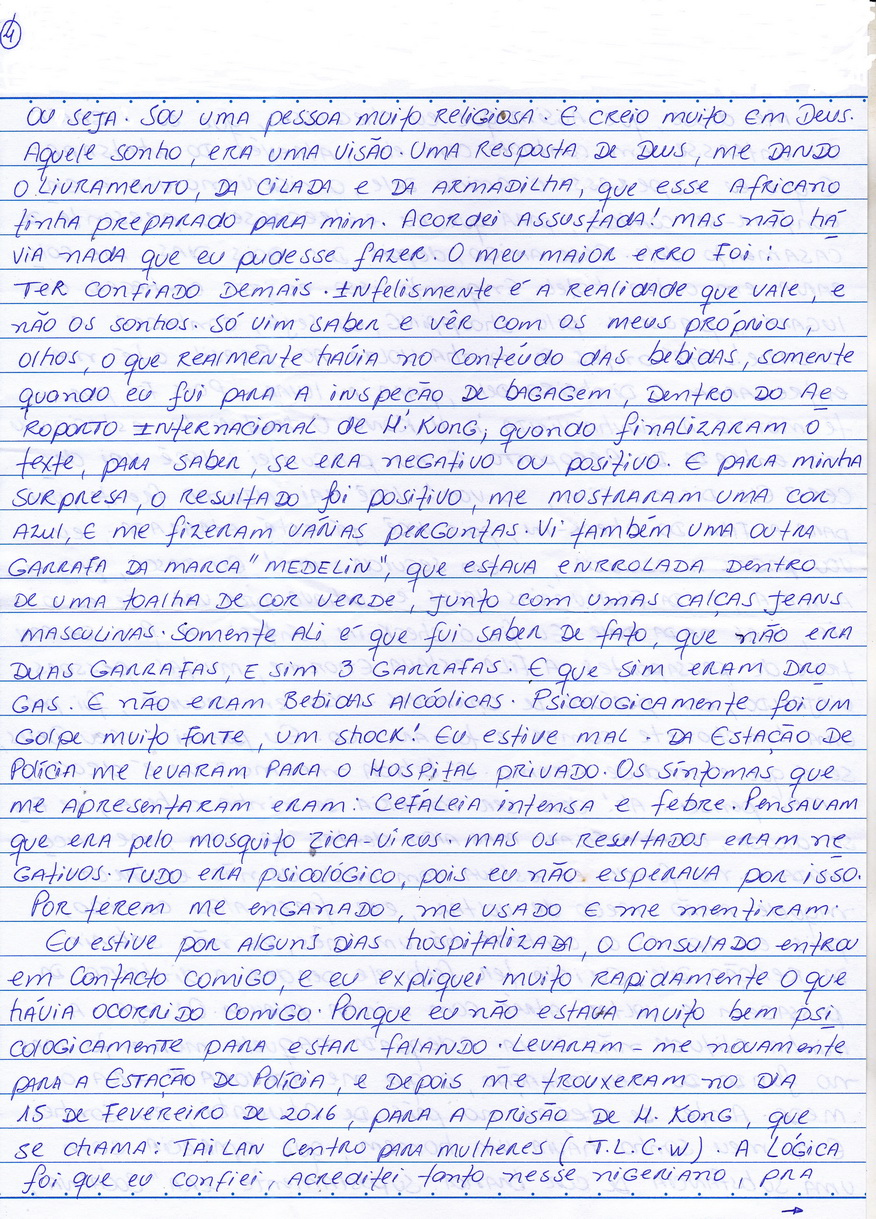 4
OU SEJA. SOU UMA PESSOA MUITO RELIGIOSA. E CREIO MUITO EM DEUS.
AQUELE SONHO, ERA UMA VISÃO. UMA RESPOSTA DE DEUS, ME DANDO
O LIVRAMENTO, DA CILADA E DA ARMADILHA, QUE ESSE AFRICANO
TINHA PREPARADO PARA MIM. ACORDEI ASSUSTADA! MAS NÃO HÁ
VIA NADA QUE EU PUDESSE FAZER. O MEU MAIOR ERRO FOI:
TER CONFIADO DEMAIS. INFELISMENTE É A REALIDADE QUE VALE, E
NÃO OS SONHOS. SÓ VIM SABER E VÊR COM OS MEUS PRÓPRIOS,
OLHOS, O QUE REALMENTE HAÚIA NO CONTEÚDO DAS BEBIDAS, SOMENTE
QUANDO EU FUI PARA A INSPEÇÃO DE BAGAGEM, DENTRO DO AE
ROPORTO INTERNACIONAL DE H. KONG, QUANDO FINALIZARAM O
TEXTE, PARA SABER, SE ERA NEGATIVO OU POSITIVO. E PARA MINHA
SURPRESA, O RESULTADO FOI POSITIVO, ME MOSTRARAM UMA COR
AZUL, E ME FIZERAM VÁRIAS PERGUNTAS. VI TAMBÉM UMA OUTRA
GARRAFA DA MARCA "MEDELIN", QUE ESTAVA ENRROLADA DENTRO
DE UMA TOALHA DE COR VERDE, JUNTO COM UMAS CALÇAS JEANS
MASCULINAS. SOMENTE ALI É QUE FUI SABER DE FATO, QUE NÃO ERA
DUAS GARRAFAS, E SIM 3 GARRAFAS. E QUE SIM ERAM DRO
GAS. E NÃO ERAM BEBIDAS ALCÓOLICAS. PSICOLOGICAMENTE FOI UM
GOLPE MUITO FORTE, UM SHOCK! EU ESTIVE MAL. DA ESTAÇÃO DE
POLÍCIA ME LEVARAM PARA O HOSPITAL PRIVADO. OS SÍNTOMAS QUE
ME APRESENTARAM ERAM: CEFÁLEIA INTENSA E FEBRE. PENSAVAM
QUE ERA PELO MOSQUITO ZICA-VÍRUS. MAS OS RESULTADOS ERAM NE
GATIVOS. TUDO ERA PSICOLÓGICO, POIS EU NÃO ESPERAVA POR ISSO.
POR TEREM ME ENGANADO, ME USADO E ME MENTIRAM.
EU ESTIVE POR ALGUNS DIAS HOSPITALIZADA, O CONSULADO ENTROU
EM CONTACTO COMIGO, E EU EXPLIQUEI MUITO RAPIDAMENTE O QUE
HÁVIA OCORRIDO COMIGO. PORQUE EU NÃO ESTAVA MUITO BEM PSI
COLOGICAMENTE PARA ESTAR FALANDO. LEVARAM-ME NOVAMENTE
PARA A ESTAÇÃO DE POLÍCIA, E DEPOIS ME TROUXERAM NO DIA
15 DE FEVEREIRO DE 2016, PARA A PRISÃO DE H. KONG, QUE
SE CHAMA: TAI LAN CENTRO PARA MULHERES (T.L.C.W). A LÓGICA
FOI QUE EU CONFIEI, ACREDITEI TANTO NESSE NIGERIANO, PRA
→